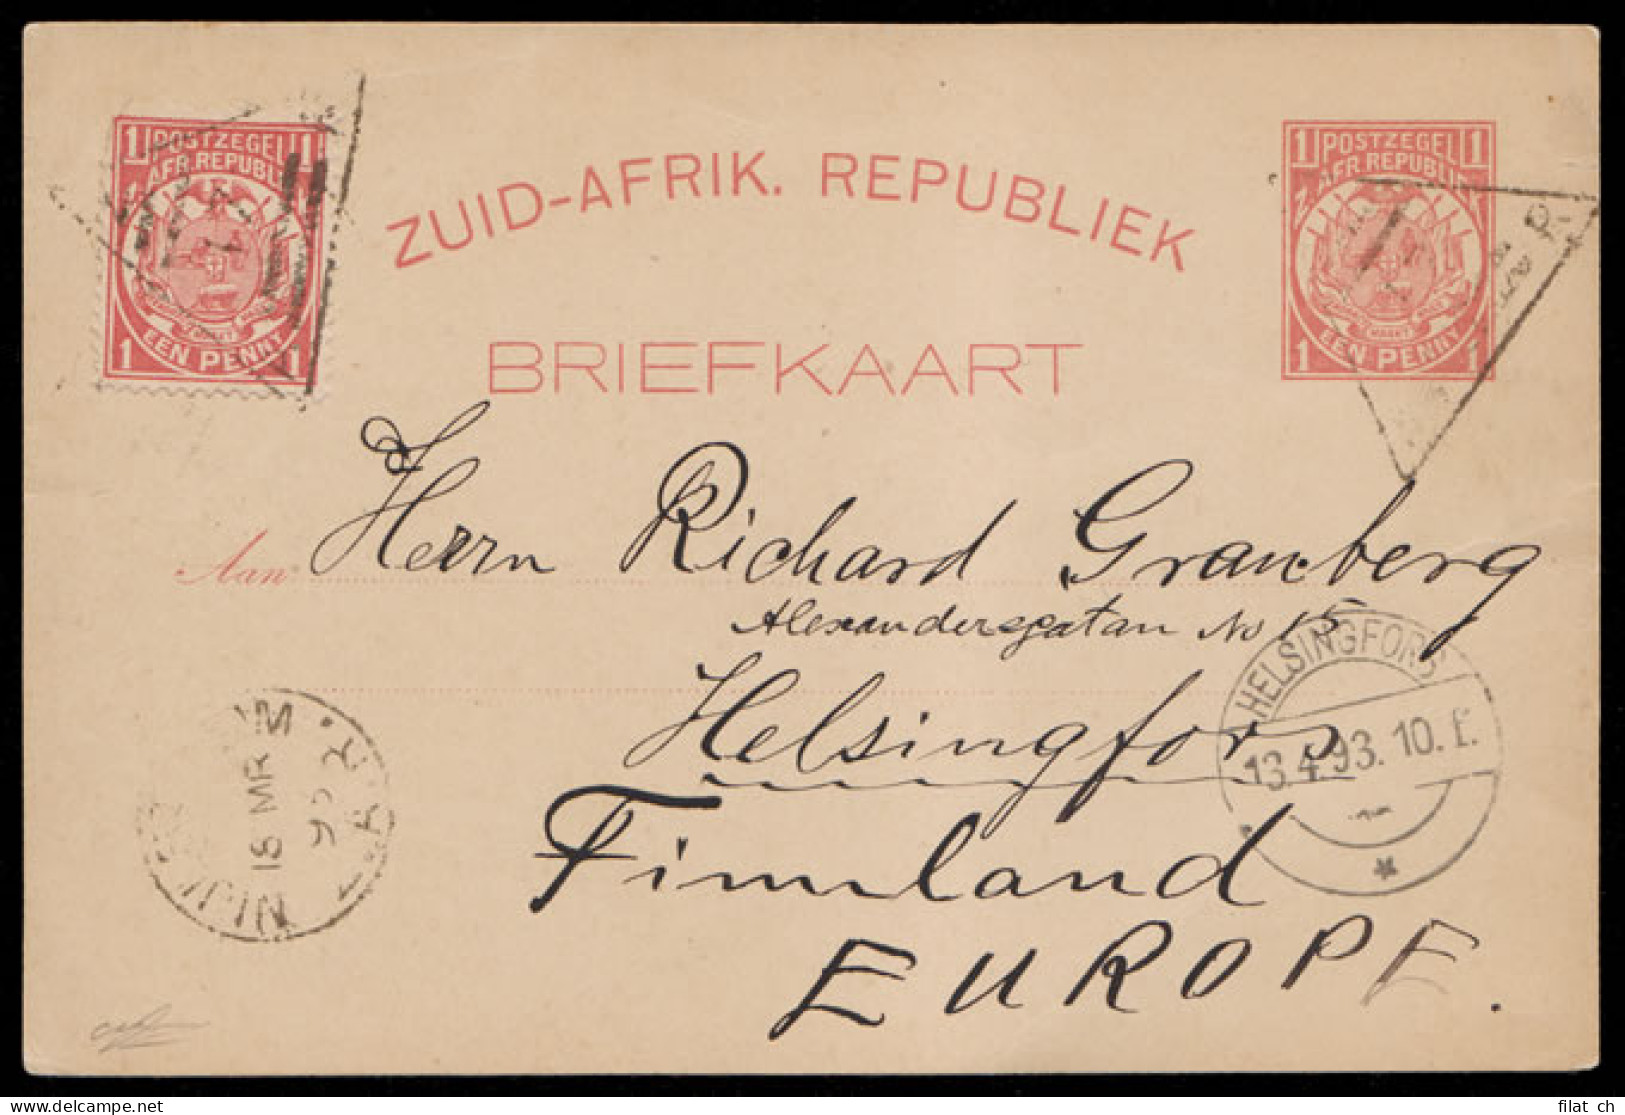 1 POSTZEGEL 1
Z. AFR. REPUBLIEK
EEN PENNY
1 1
ZUID-AFRIK. REPUBLIEK
BRIEFKAART
1 POSTZEGEL 1
Z. AFR. REPUBLIEK
EEN PENNY
1 1
Aan Herrn Richard Granberg
Alexandersgatan No 15
Helsingfors
Finnland
EUROPE.
HELSINGFORS
13.4.93. 10.F.
18 MR
Z.A.R.
filat ch